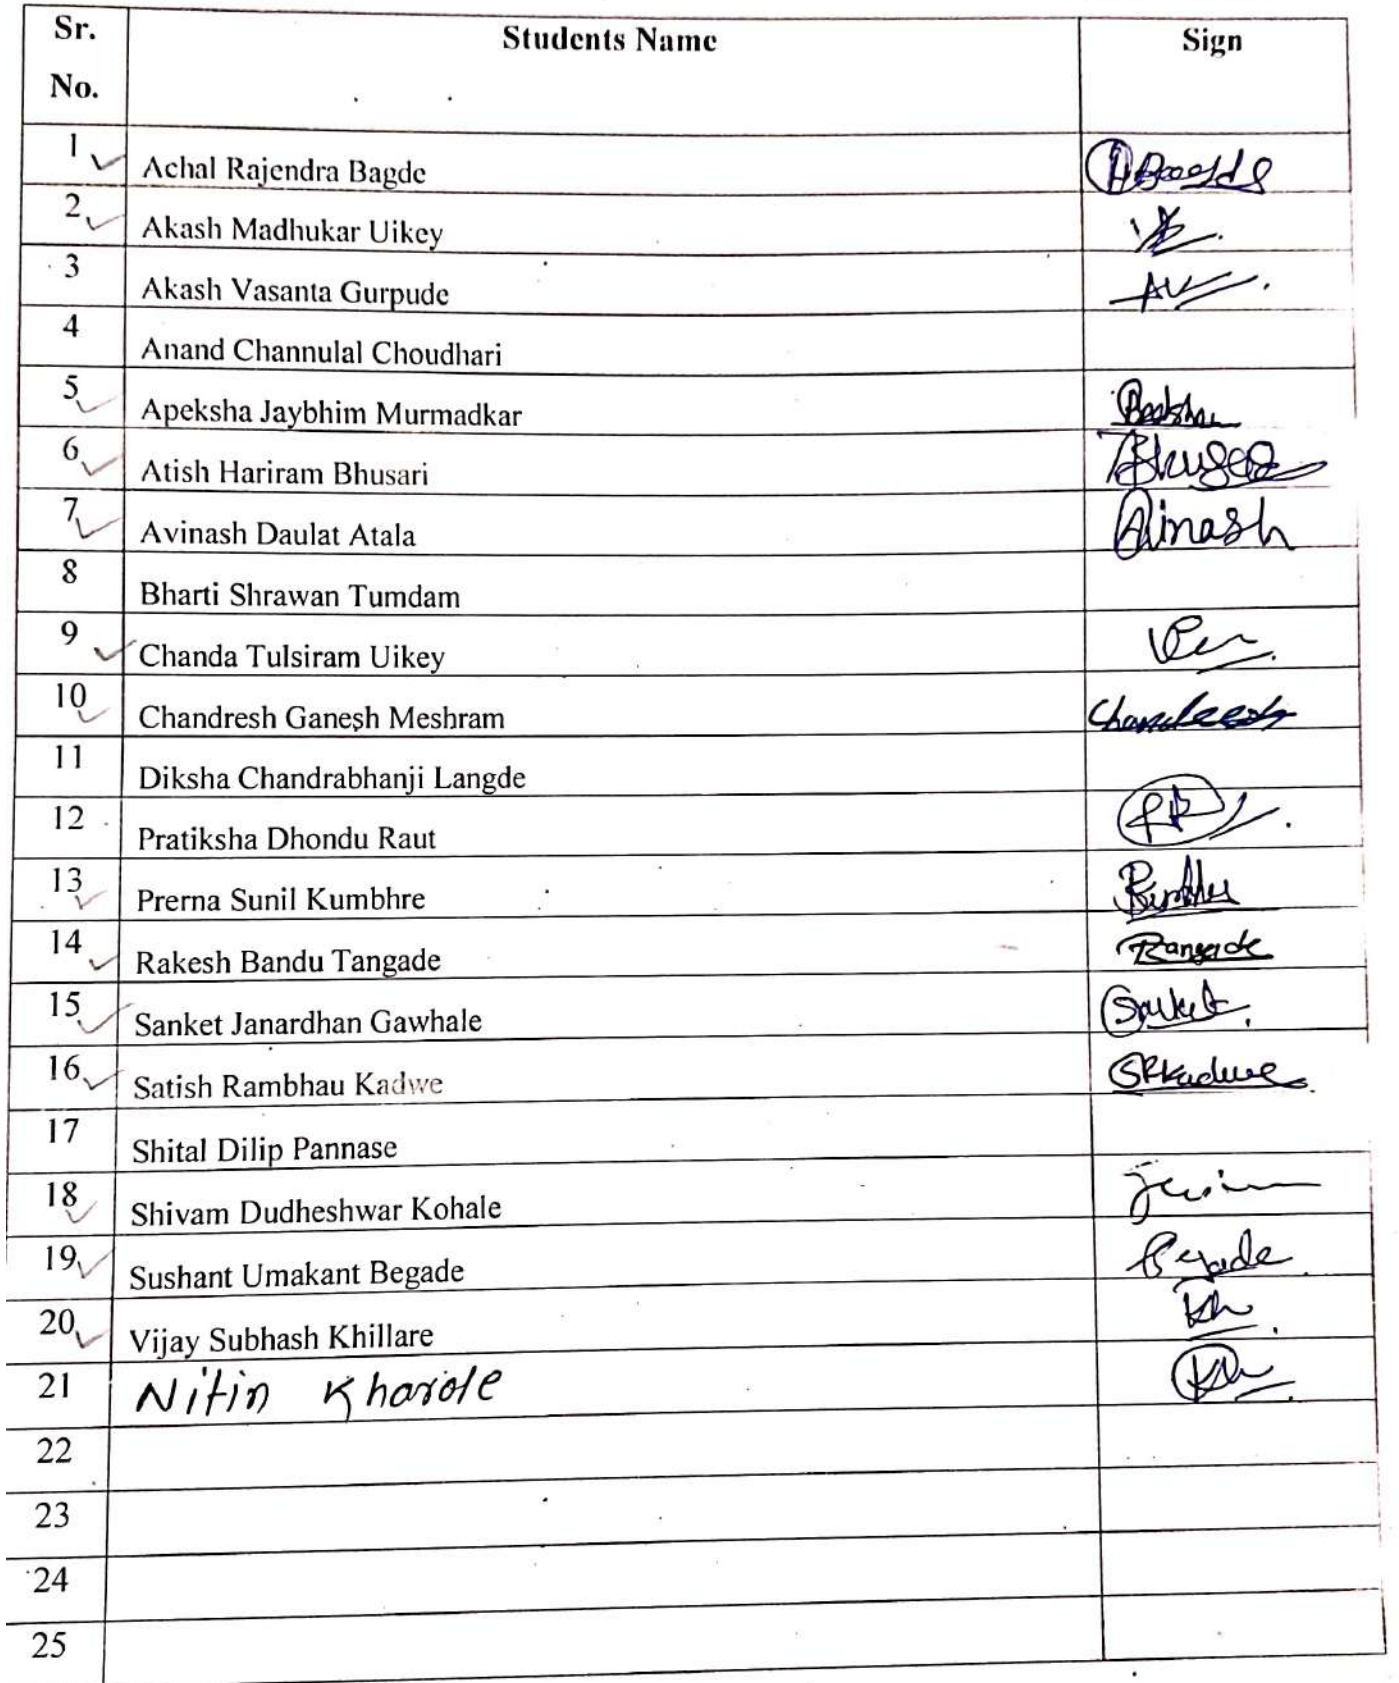 Sr. No. Students Name Sign
1 Achal Rajendra Bagde
2 Akash Madhukar Uikey
3 Akash Vasanta Gurpude AV
4 Anand Channulal Choudhari
5 Apeksha Jaybhim Murmadkar
6 Atish Hariram Bhusari
7 Avinash Daulat Atala Avinash
8 Bharti Shrawan Tumdam
9 Chanda Tulsiram Uikey
10 Chandresh Ganesh Meshram
11 Diksha Chandrabhanji Langde
12 Pratiksha Dhondu Raut
13 Prerna Sunil Kumbhre
14 Rakesh Bandu Tangade
15 Sanket Janardhan Gawhale Sanket
16 Satish Rambhau Kadwe SRKadwe
17 Shital Dilip Pannase
18 Shivam Dudheshwar Kohale
19 Sushant Umakant Begade Begade
20 Vijay Subhash Khillare Kh
21 Nitin Kharole
22
23
24
25